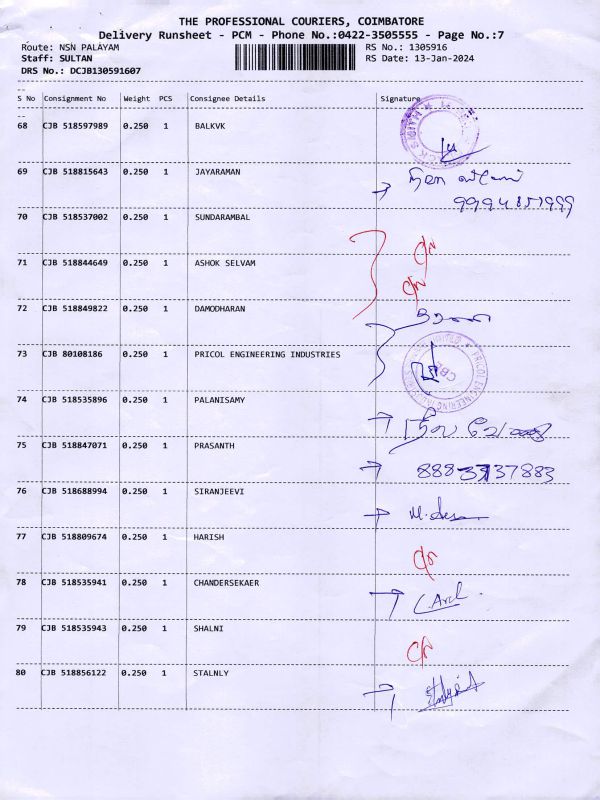 THE PROFESSIONAL COURIERS, COIMBATORE
Delivery Runsheet - PCM - Phone No.:0422-3505555 - Page No.:7
Route: NSN PALAYAM RS No.: 1305916
Staff: SULTAN RS Date: 13-Jan-2024
DRS No.: DCJB130591607
S No Consignment No Weight PCS Consignee Details Signature
68 CJB 518597989 0.250 1 BALKVK
69 CJB 518815643 0.250 1 JAYARAMAN
9994851999
70 CJB 518537002 0.250 1 SUNDARAMBAL
71 CJB 518844649 0.250 1 ASHOK SELVAM
72 CJB 518849822 0.250 1 DAMODHARAN
73 CJB 80108186 0.250 1 PRICOL ENGINEERING INDUSTRIES
PRICOL ENGINEERING INDUSTRIES
CBE
74 CJB 518535896 0.250 1 PALANISAMY
75 CJB 518847071 0.250 1 PRASANTH
76 CJB 518688994 0.250 1 SIRANJEEVI
77 CJB 518809674 0.250 1 HARISH
78 CJB 518535941 0.250 1 CHANDERSEKAER
79 CJB 518535943 0.250 1 SHALNI
80 CJB 518856122 0.250 1 STALNLY